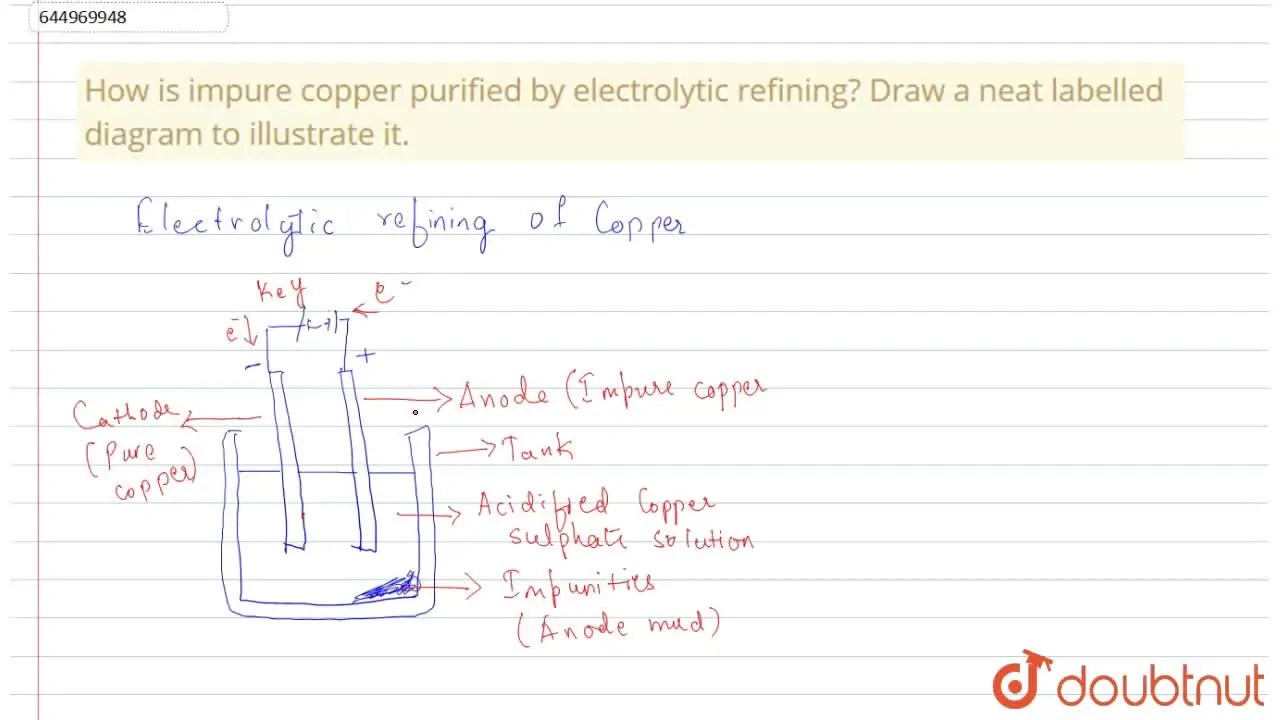 644969948
How is impure copper purified by electrolytic refining? Draw a neat labelled
diagram to illustrate it.
Electrolytic refining of Copper
Key
e⁻
e⁻
-
+
Cathode
(Pure
copper)
Anode (Impure copper
Tank
Acidified Copper
sulphate solution
Impurities
(Anode mud)
doubtnut